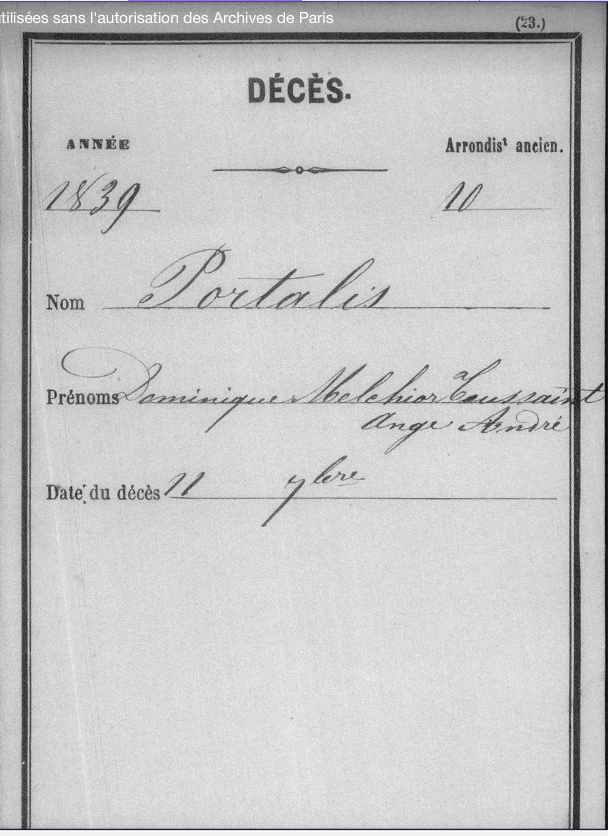 tilisées sans l'autorisation des Archives de Paris
(23.)
DÉCÈS.
ANNÉE
Arrondisᵗ ancien.
1839
10
Nom Portalis
Prénoms Dominique Melchior Toussaint
Ange André
Date du décès 11 7bre